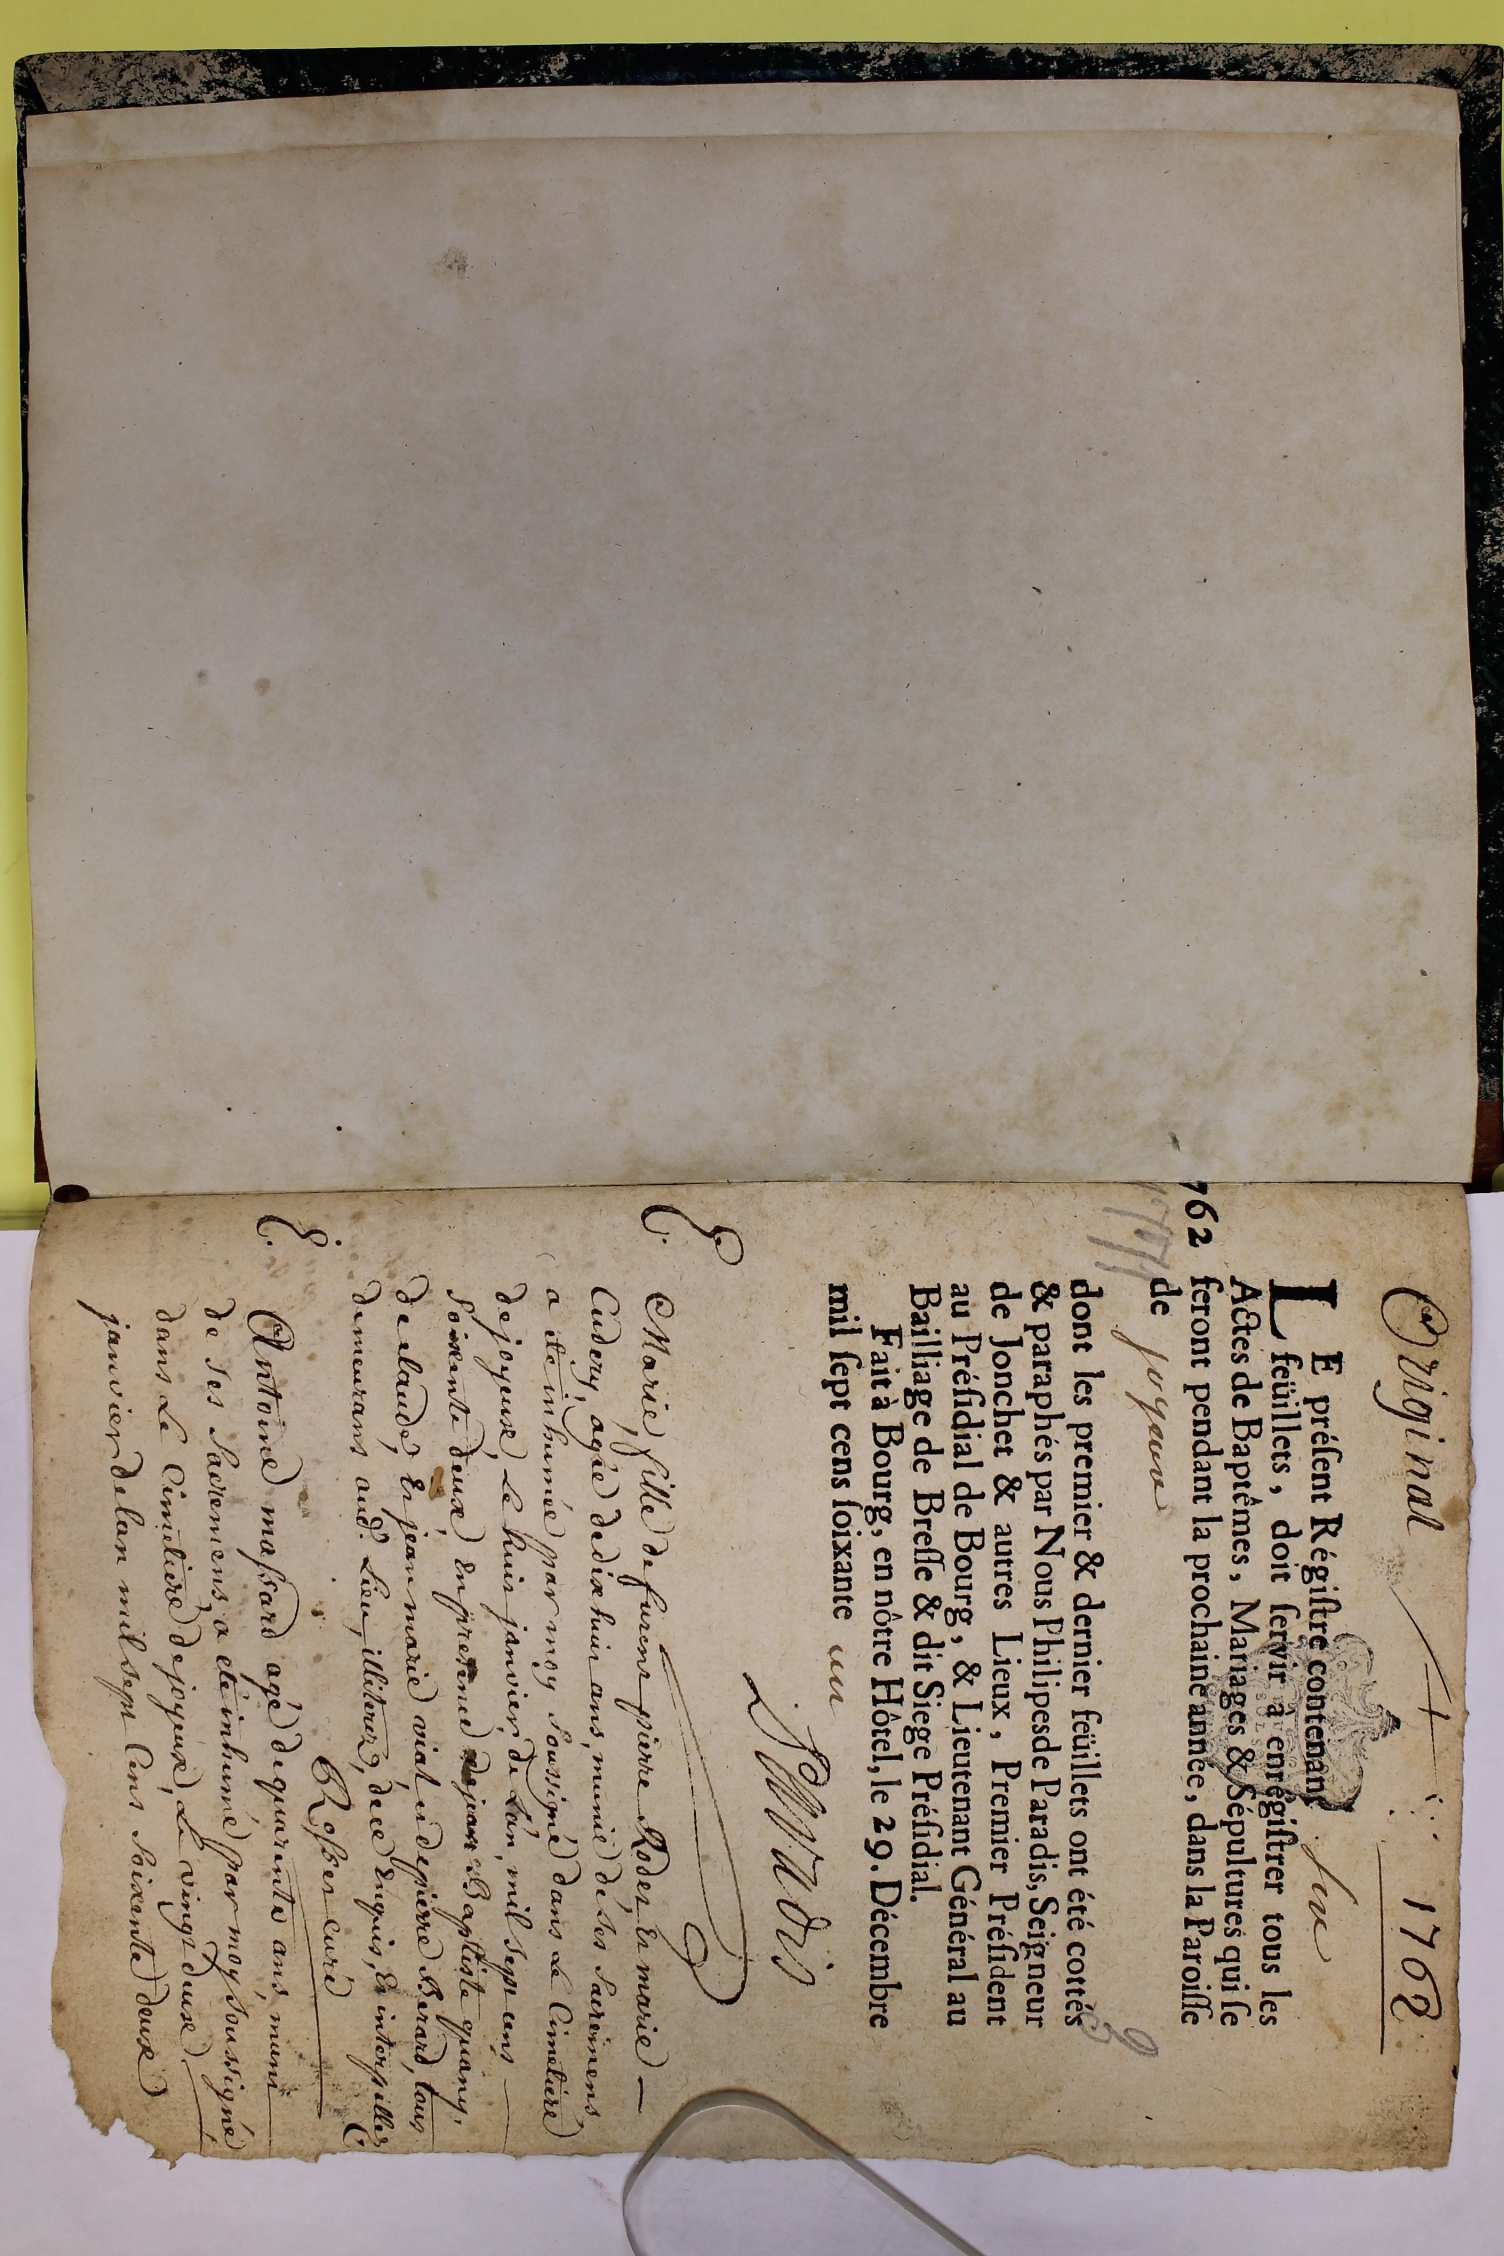 Original 1762
LE préſent Régiſtre contenant six
feüillets, doit ſervir à enrégiſtrer tous les
Actes de Baptêmes, Mariages & Sépultures qui ſe
762 feront pendant la prochaine année, dans la Paroiſſe
de joyeux
dont les premier & dernier feüillets ont été cottés
& paraphés par Nous Philipes de Paradis, Seigneur
de Jonchet & autres Lieux, Premier Préſident
au Préſidial de Bourg, & Lieutenant Général au
Bailliage de Breſſe & dit Siege Préſidial.
Fait à Bourg, en nôtre Hôtel, le 29. Décembre
mil ſept cens ſoixante un
Paradis
E. Marie, fille de furent pierre Rodet Et marie
Cudery, agée de dix huit ans, munie de ses sacremens
a été inhumée par moy soussigné dans Le Cimetiere
de joyeux, Le huit janvier de L'an mil sept cens
soixante deux En presence de jean Baptiste quiany,
de claude, Et jean marie viat et de pierre Berard, tous
demeurans aud. Lieu, illiterez, de ce Enquis, Et interpellez
Rosset curé
E. Antoine massard agé de quarente ans, muni
de ses sacremens a été inhumé par moy soussigné
dans Le Cimetiere de joyeux, Le vingt deux
janvier de lan mil sept Cens soixente deux